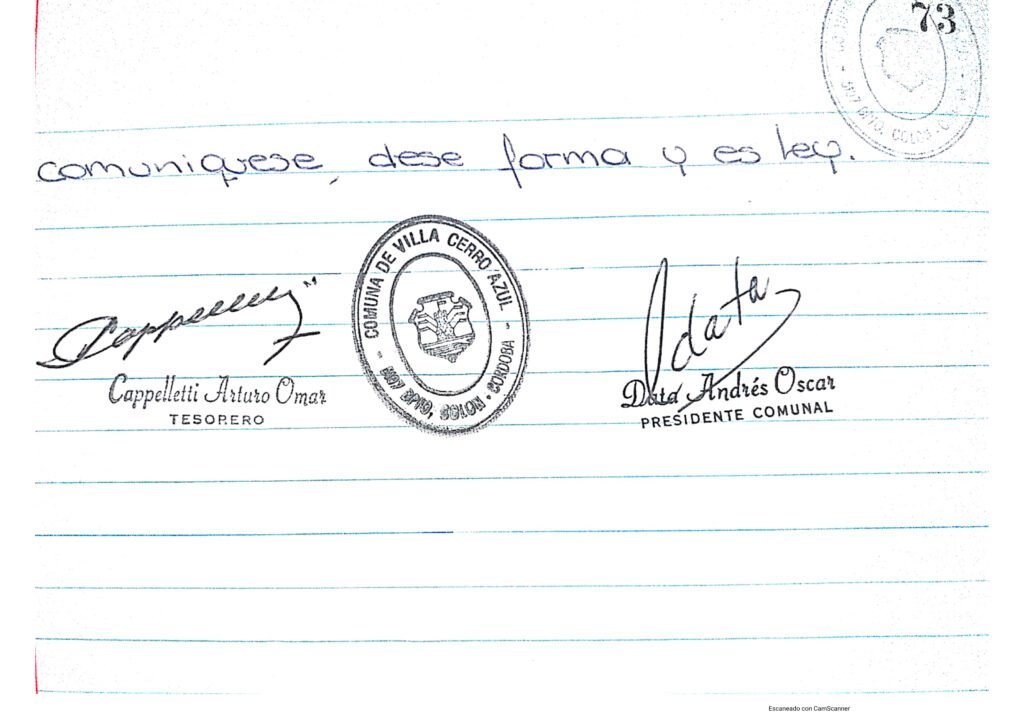 73
DPTO. COLON
comuniquese, dese forma y es ley.
COMUNA DE VILLA CERRO AZUL
DPTO. COLON - CORDOBA
Cappelletti
data
Cappelletti Arturo Omar
TESORERO
Data Andrés Oscar
PRESIDENTE COMUNAL
Escaneado con CamScanner